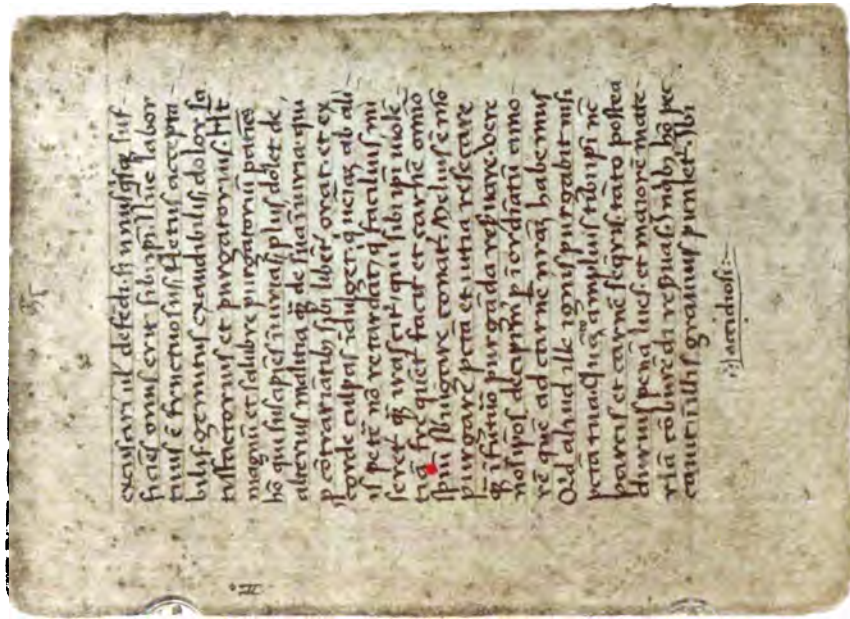 excusari ul' defēdi. sʒ unusqsqʒ suf
ficiēs onus erit sibi ipi. Nūc labor
tuus ē fructuosus. fletus accepta
bilis. gemitus exaudibilis. dolor sa
tisfactorius et purgatorius. Ht
magnū et salubre purgatoriū patiēs
hō qui suscipiēs iniurias plus dolet de
alterius malitia qʒ de sua iniuria. qui
p cōtrariātibʒ sibi libēt orat. et ex
corde culpas īdulget. q ueniaʒ ab ali
is petē nō retardat. q facilius mi
seret qʒ irascit. qui sibi ipi uiolē
tiā freqēt facit et carnē omīo
spui subiugare conat. Melius ē mō
purgare pctā et uitia resecare
qʒ ī futuro purgāda reseruare. Vere
nosipos decipim p īordiatū amo
rē quē ad carnē nrāʒ habemus
Qd aliud ille ignis purgabit nisi
pctā tua. quāto amplius tibi ipi nē
parcis et carnē seqris. tāto postea
durius penā lues et maiorē mate
riā cōburēdi reseruas. In qbʒ hō pec
cauit ī illis grauius puniet. Ibi
accidiosi